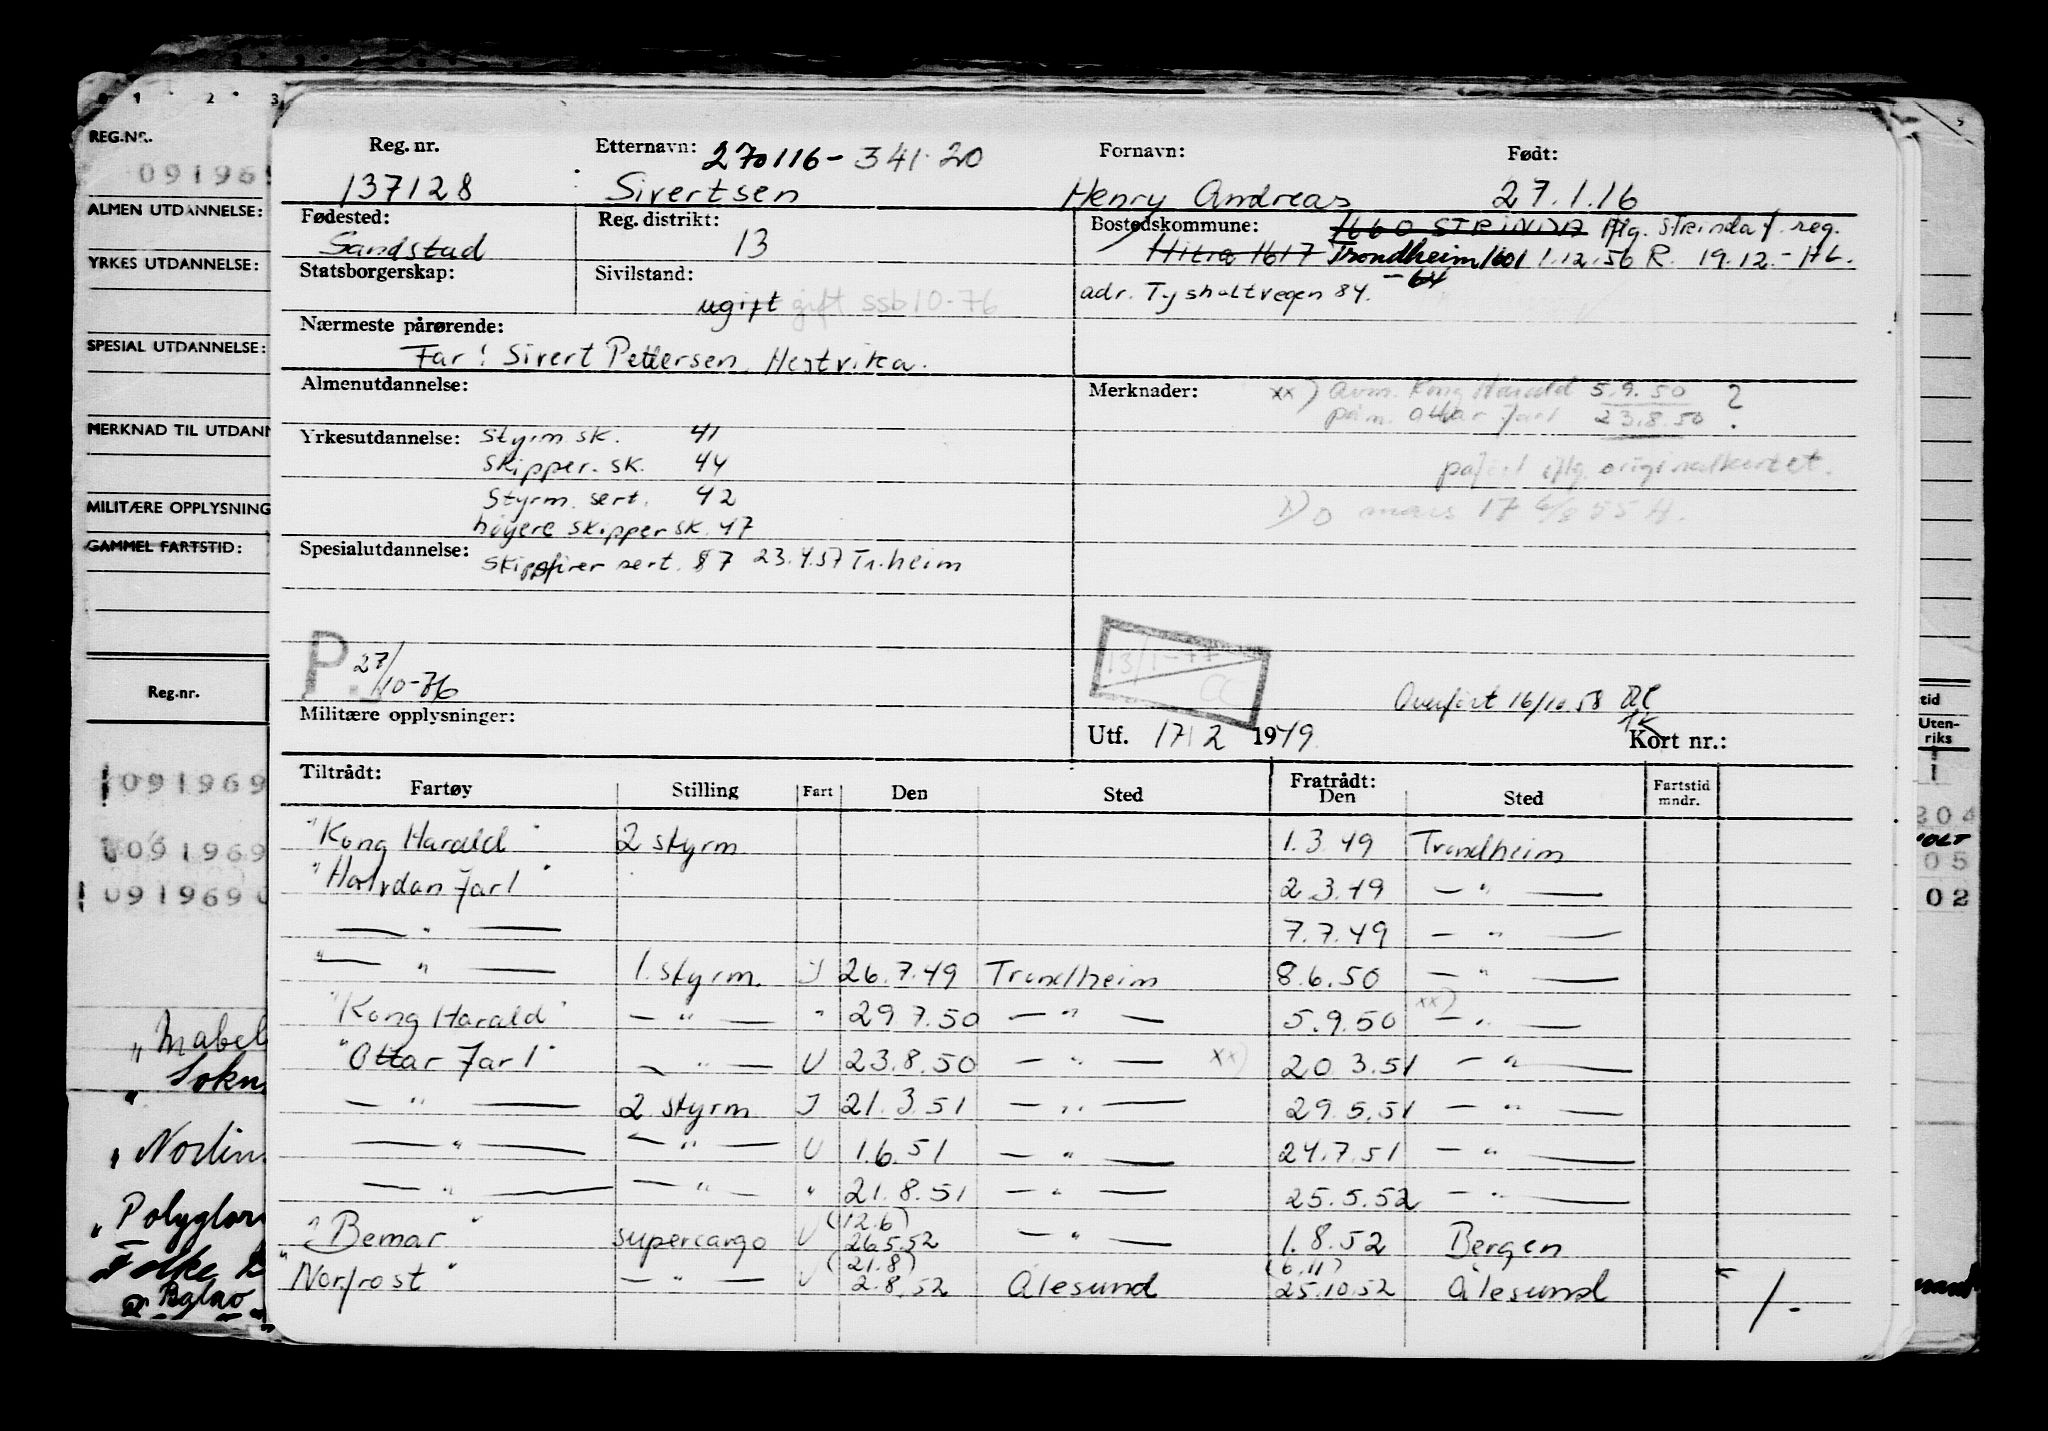 0 1 2 3
REG.NR.
091969
ALMEN UTDANNELSE:
YRKES UTDANNELSE:
SPESIAL UTDANNELSE:
MERKNAD TIL UTDANN
MILITÆRE OPPLYSNING
GAMMEL FARTSTID:
Reg.nr.
091969
091969
091969 0
"Mabel
" Sokn
" Norlin
" Polyglor
Folke
tid
Uten-
riks
204
05
02
Reg. nr. Etternavn: 270116- 341 20 Fornavn: Født:
137128 Sivertsen Henry Andreas 27.1.16
Fødested: Reg. distrikt: Bostedskommune: 1660 STRINDA iflg. Strinda f. reg.
Sandstad 13 Hitra 1617 Trondheim 1601 1.12.56 R. 19.12.- HL.
-64
Statsborgerskap: Sivilstand: adr. Tysholtvegen 84.
ugift gift ssb 10-76
Nærmeste pårørende:
Far: Sivert Pettersen, Hestvika.
Almenutdannelse: Merknader: xx) Avm. Kong Harald 5.9.50 ?
påm. Ottar Jarl 23.8.50
Yrkesutdannelse: Styrm sk. 41
Skipper. sk. 44 iflg. originalkortet.
Styrm. sert. 42
høyere skipper sk. 47
Spesialutdannelse: Skipsfører sert. 87 23.4.57 Tr.heim
P. 27/10-76
13/1-77
CC
Overført 16/10 58
Militære opplysninger: Utf. 17/2 1949 Kort nr.:
Tiltrådt: Fratrådt:
Fartøy Stilling Fart Den Sted Den Sted Fartstid mndr.
"Kong Harald" 2 styrm 1.3.49 Trondheim
"Halvdan Jarl" 2.3.49 — " —
— " — 7.7.49 — " —
— " — 1. styrm. J 26.7.49 Trondheim 8.6.50 — " —
"Kong Harald" — " — " 29.7.50 — " — 5.9.50 xx) — " —
"Ottar Jarl" — " — U 23.8.50 — " — xx) 20.3.51 — " —
— " — 2 styrm J 21.3.51 — " — 29.5.51 — " —
— " — — " — U 1.6.51 — " — 24.7.51 — " —
— " — — " — " 21.8.51 — " — 25.5.52 — " —
"Bemar" supercargo U (12.6) 26.5.52 — " — 1.8.52 Bergen
"Norfrost" — " — U (21.8) 2.8.52 Ålesund (6.11) 25.10.52 Ålesund 1-